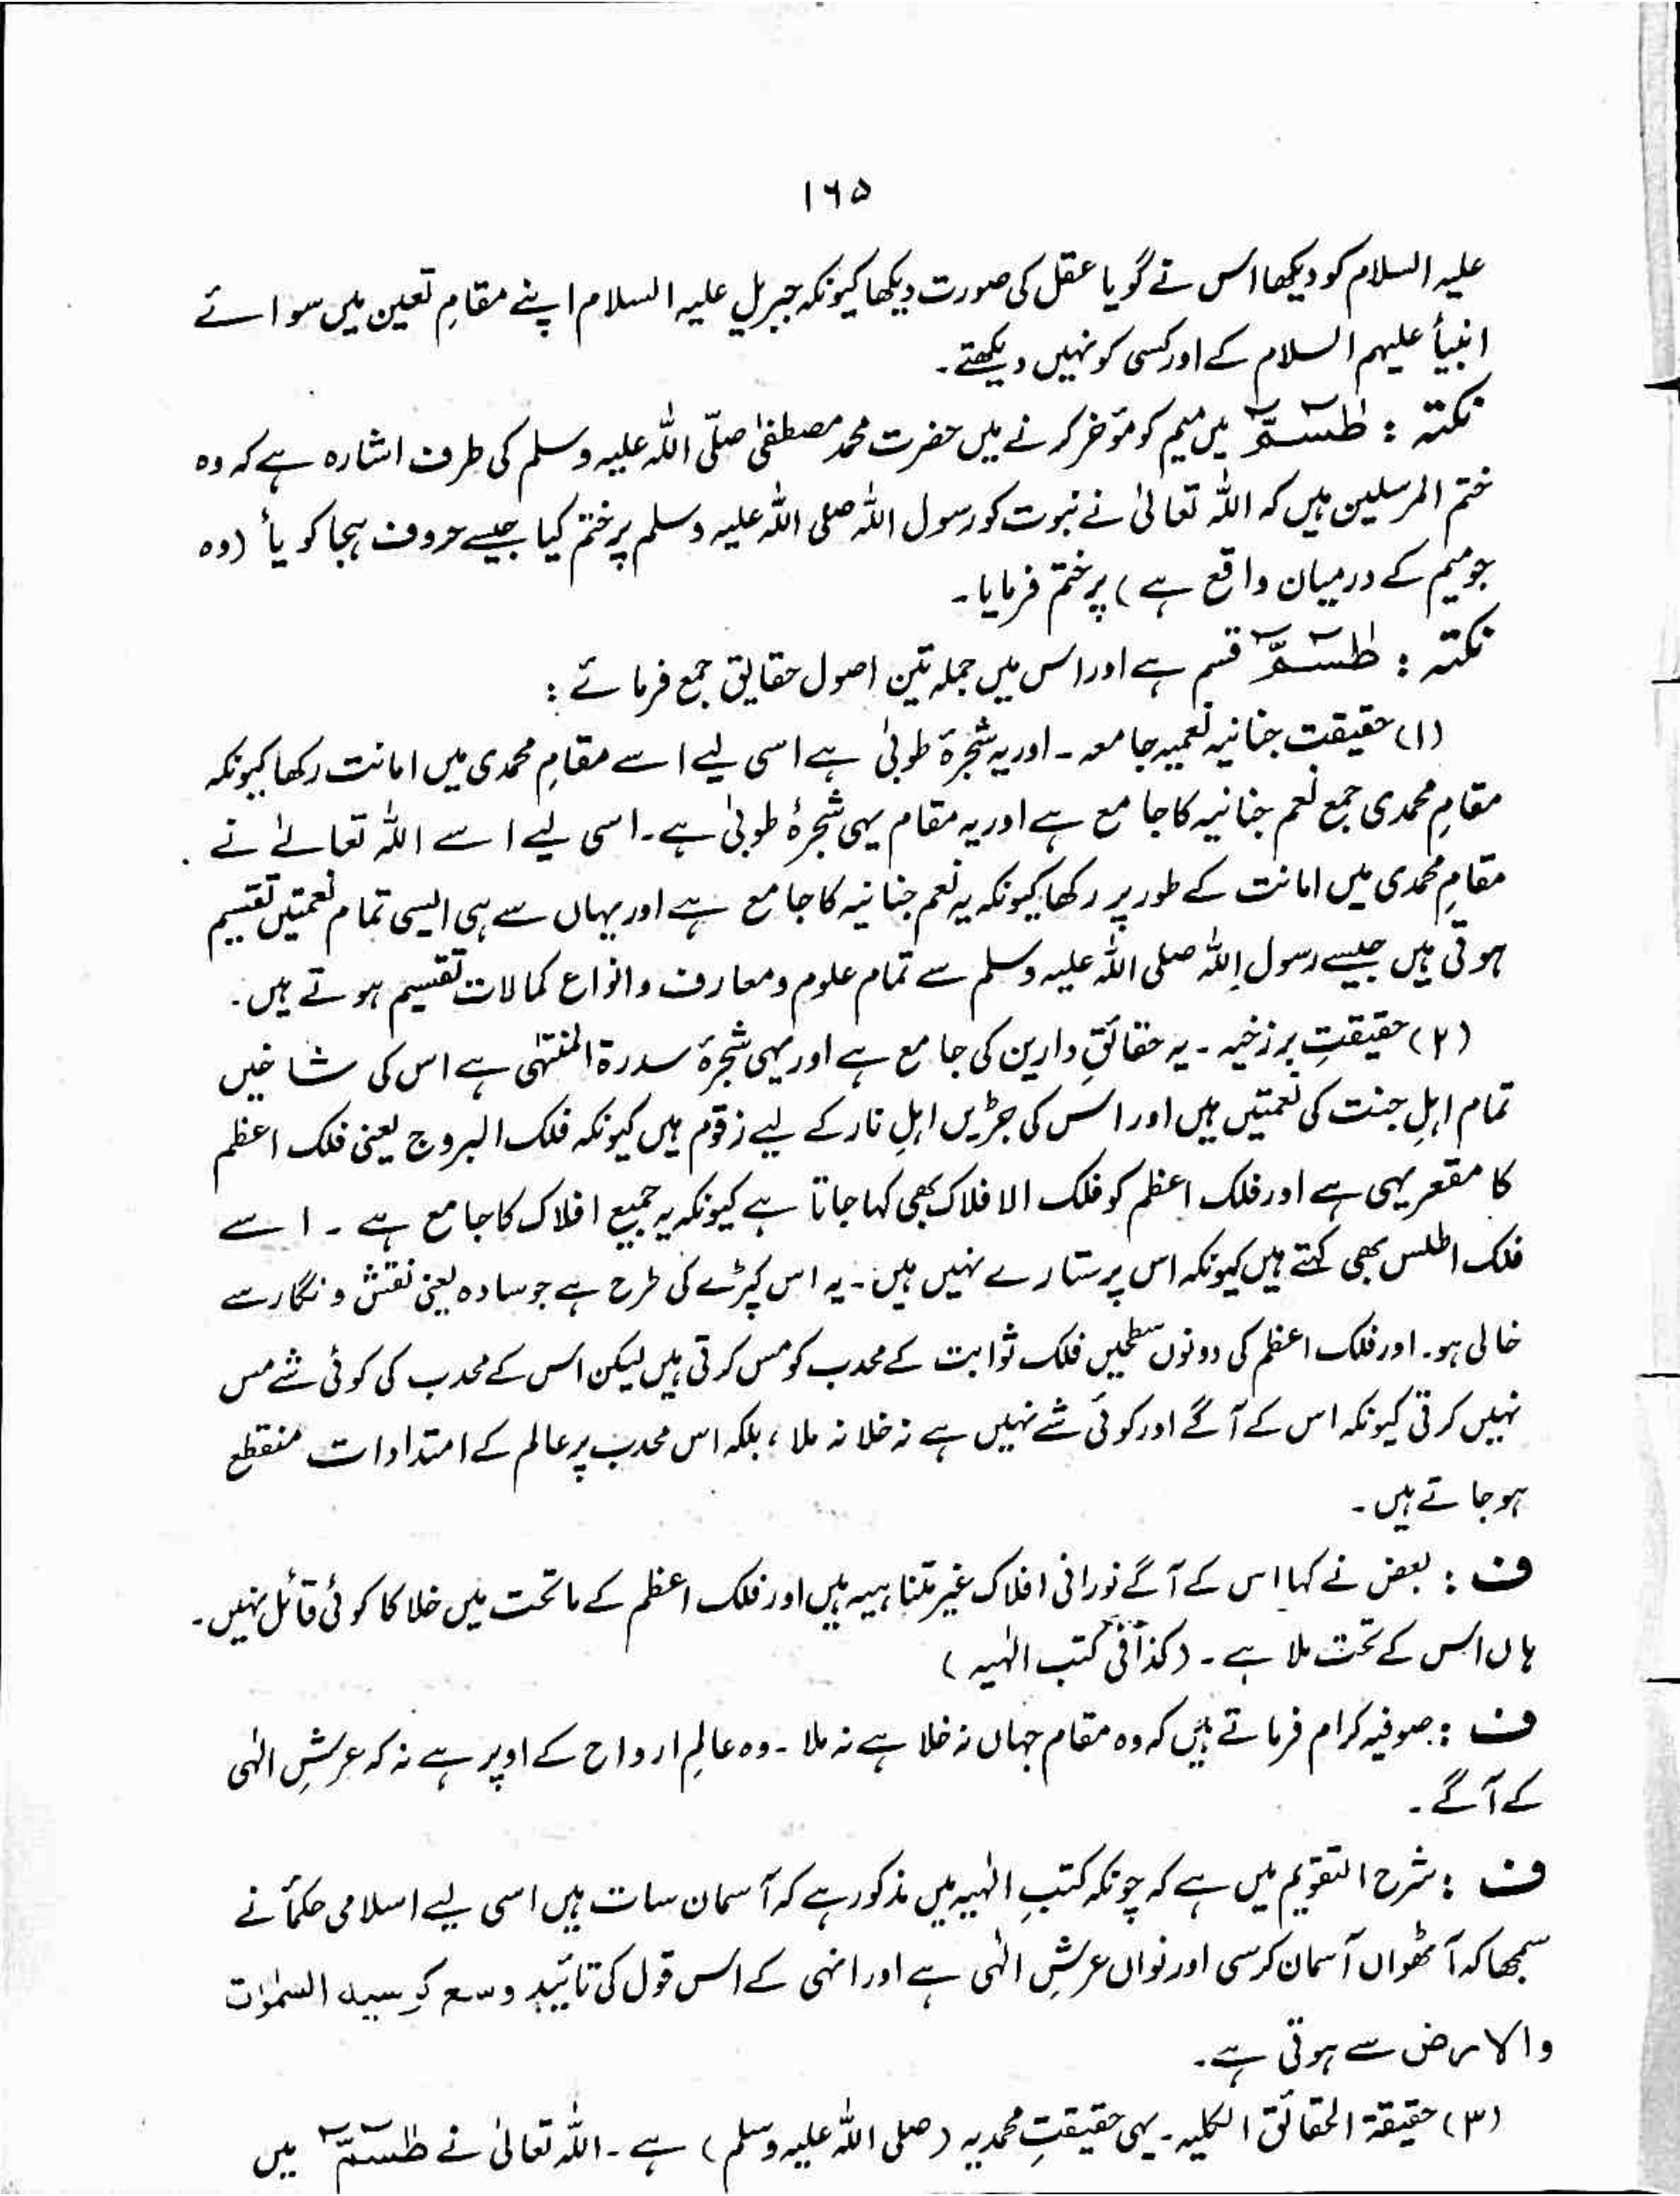 ۱۶۵
علیہ السلام کو دیکھا اس نے گویا عقل کی صورت دیکھا کیونکہ جبریل علیہ السلام اپنے مقامِ تعین میں سوائے
انبیأ علیہم السلام کے اور کسی کو نہیں دیکھتے۔
نکتہ : طٰسٓمّٓ میں میم کو مؤخر کرنے میں حضرت محمد مصطفیٰ صلّی اللہ علیہ وسلم کی طرف اشارہ ہے کہ وہ
ختم المرسلین ہیں کہ اللہ تعالیٰ نے نبوت کو رسول اللہ صلی اللہ علیہ وسلم پر ختم کیا جیسے حروف ہجا کو یأ (وہ
جو میم کے درمیان واقع ہے) پر ختم فرمایا۔
نکتہ : طٰسٓمّٓ قسم ہے اور اس میں جملہ تین اصول حقایق جمع فرمائے :
(۱) حقیقت جنانیہ نعمیہ جامعہ۔ اور یہ شجرۂ طوبیٰ ہے اسی لیے اسے مقامِ محمدی میں امانت رکھا کیونکہ
مقامِ محمدی جمع نعم جنانیہ کا جامع ہے اور یہ مقام یہی شجرۂ طوبیٰ ہے۔ اسی لیے اسے اللہ تعالےٰ نے
مقامِ محمدی میں امانت کے طور پر رکھا کیونکہ یہ نعم جنانیہ کا جامع ہے اور یہاں سے ہی ایسی تمام نعمتیں تقسیم
ہوتی ہیں جیسے رسول اللہ صلی اللہ علیہ وسلم سے تمام علوم و معارف و انواع کمالات تقسیم ہوتے ہیں۔
(۲) حقیقتِ برزخیہ۔ یہ حقائقِ دارین کی جامع ہے اور یہی شجرۂ سدرۃ المنتہٰی ہے اس کی شاخیں
تمام اہلِ جنت کی نعمتیں ہیں اور اس کی جڑیں اہلِ نار کے لیے زقوم ہیں کیونکہ فلک البروج یعنی فلک اعظم
کا مقعر یہی ہے اور فلک اعظم کو فلک الافلاک بھی کہا جاتا ہے کیونکہ یہ جمیع افلاک کا جامع ہے۔ اسے
فلک اطلس بھی کہتے ہیں کیونکہ اس پر ستارے نہیں ہیں۔ یہ اس کپڑے کی طرح ہے جو سادہ یعنی نقش و نگار سے
خالی ہو۔ اور فلک اعظم کی دونوں سطحیں فلک ثوابت کے محدب کو مس کرتی ہیں لیکن اس کے محدب کی کوئی شے مس
نہیں کرتی کیونکہ اس کے آگے اور کوئی شے نہیں ہے نہ خلا نہ ملا ، بلکہ اس محدب پر عالم کے امتدادات منقطع
ہو جاتے ہیں۔
ف : بعض نے کہا اس کے آگے نورانی افلاک غیر متناہیہ ہیں اور فلک اعظم کے ماتحت میں خلا کا کوئی قائل نہیں۔
ہاں اس کے تحت ملا ہے۔ (کذا فی کتب الٰہیہ)
ف : صوفیہ کرام فرماتے ہیں کہ وہ مقام جہاں نہ خلا ہے نہ ملا۔ وہ عالمِ ارواح کے اوپر ہے نہ کہ عرشِ الٰہی
کے آگے۔
ف : شرح التقویم میں ہے کہ چونکہ کتبِ الٰہیہ میں مذکور ہے کہ آسمان سات ہیں اسی لیے اسلامی حکمأ نے
سمجھا کہ آٹھواں آسمان کرسی اور نواں عرشِ الٰہی ہے اور انہی کے اس قول کی تائید وسع کرسیہ السمٰوات
والارض سے ہوتی ہے۔
(۳) حقیقۃ الحقائق الکلیہ۔ یہی حقیقتِ محمدیہ (صلی اللہ علیہ وسلم) ہے۔ اللہ تعالیٰ نے طٰسٓمّٓ میں